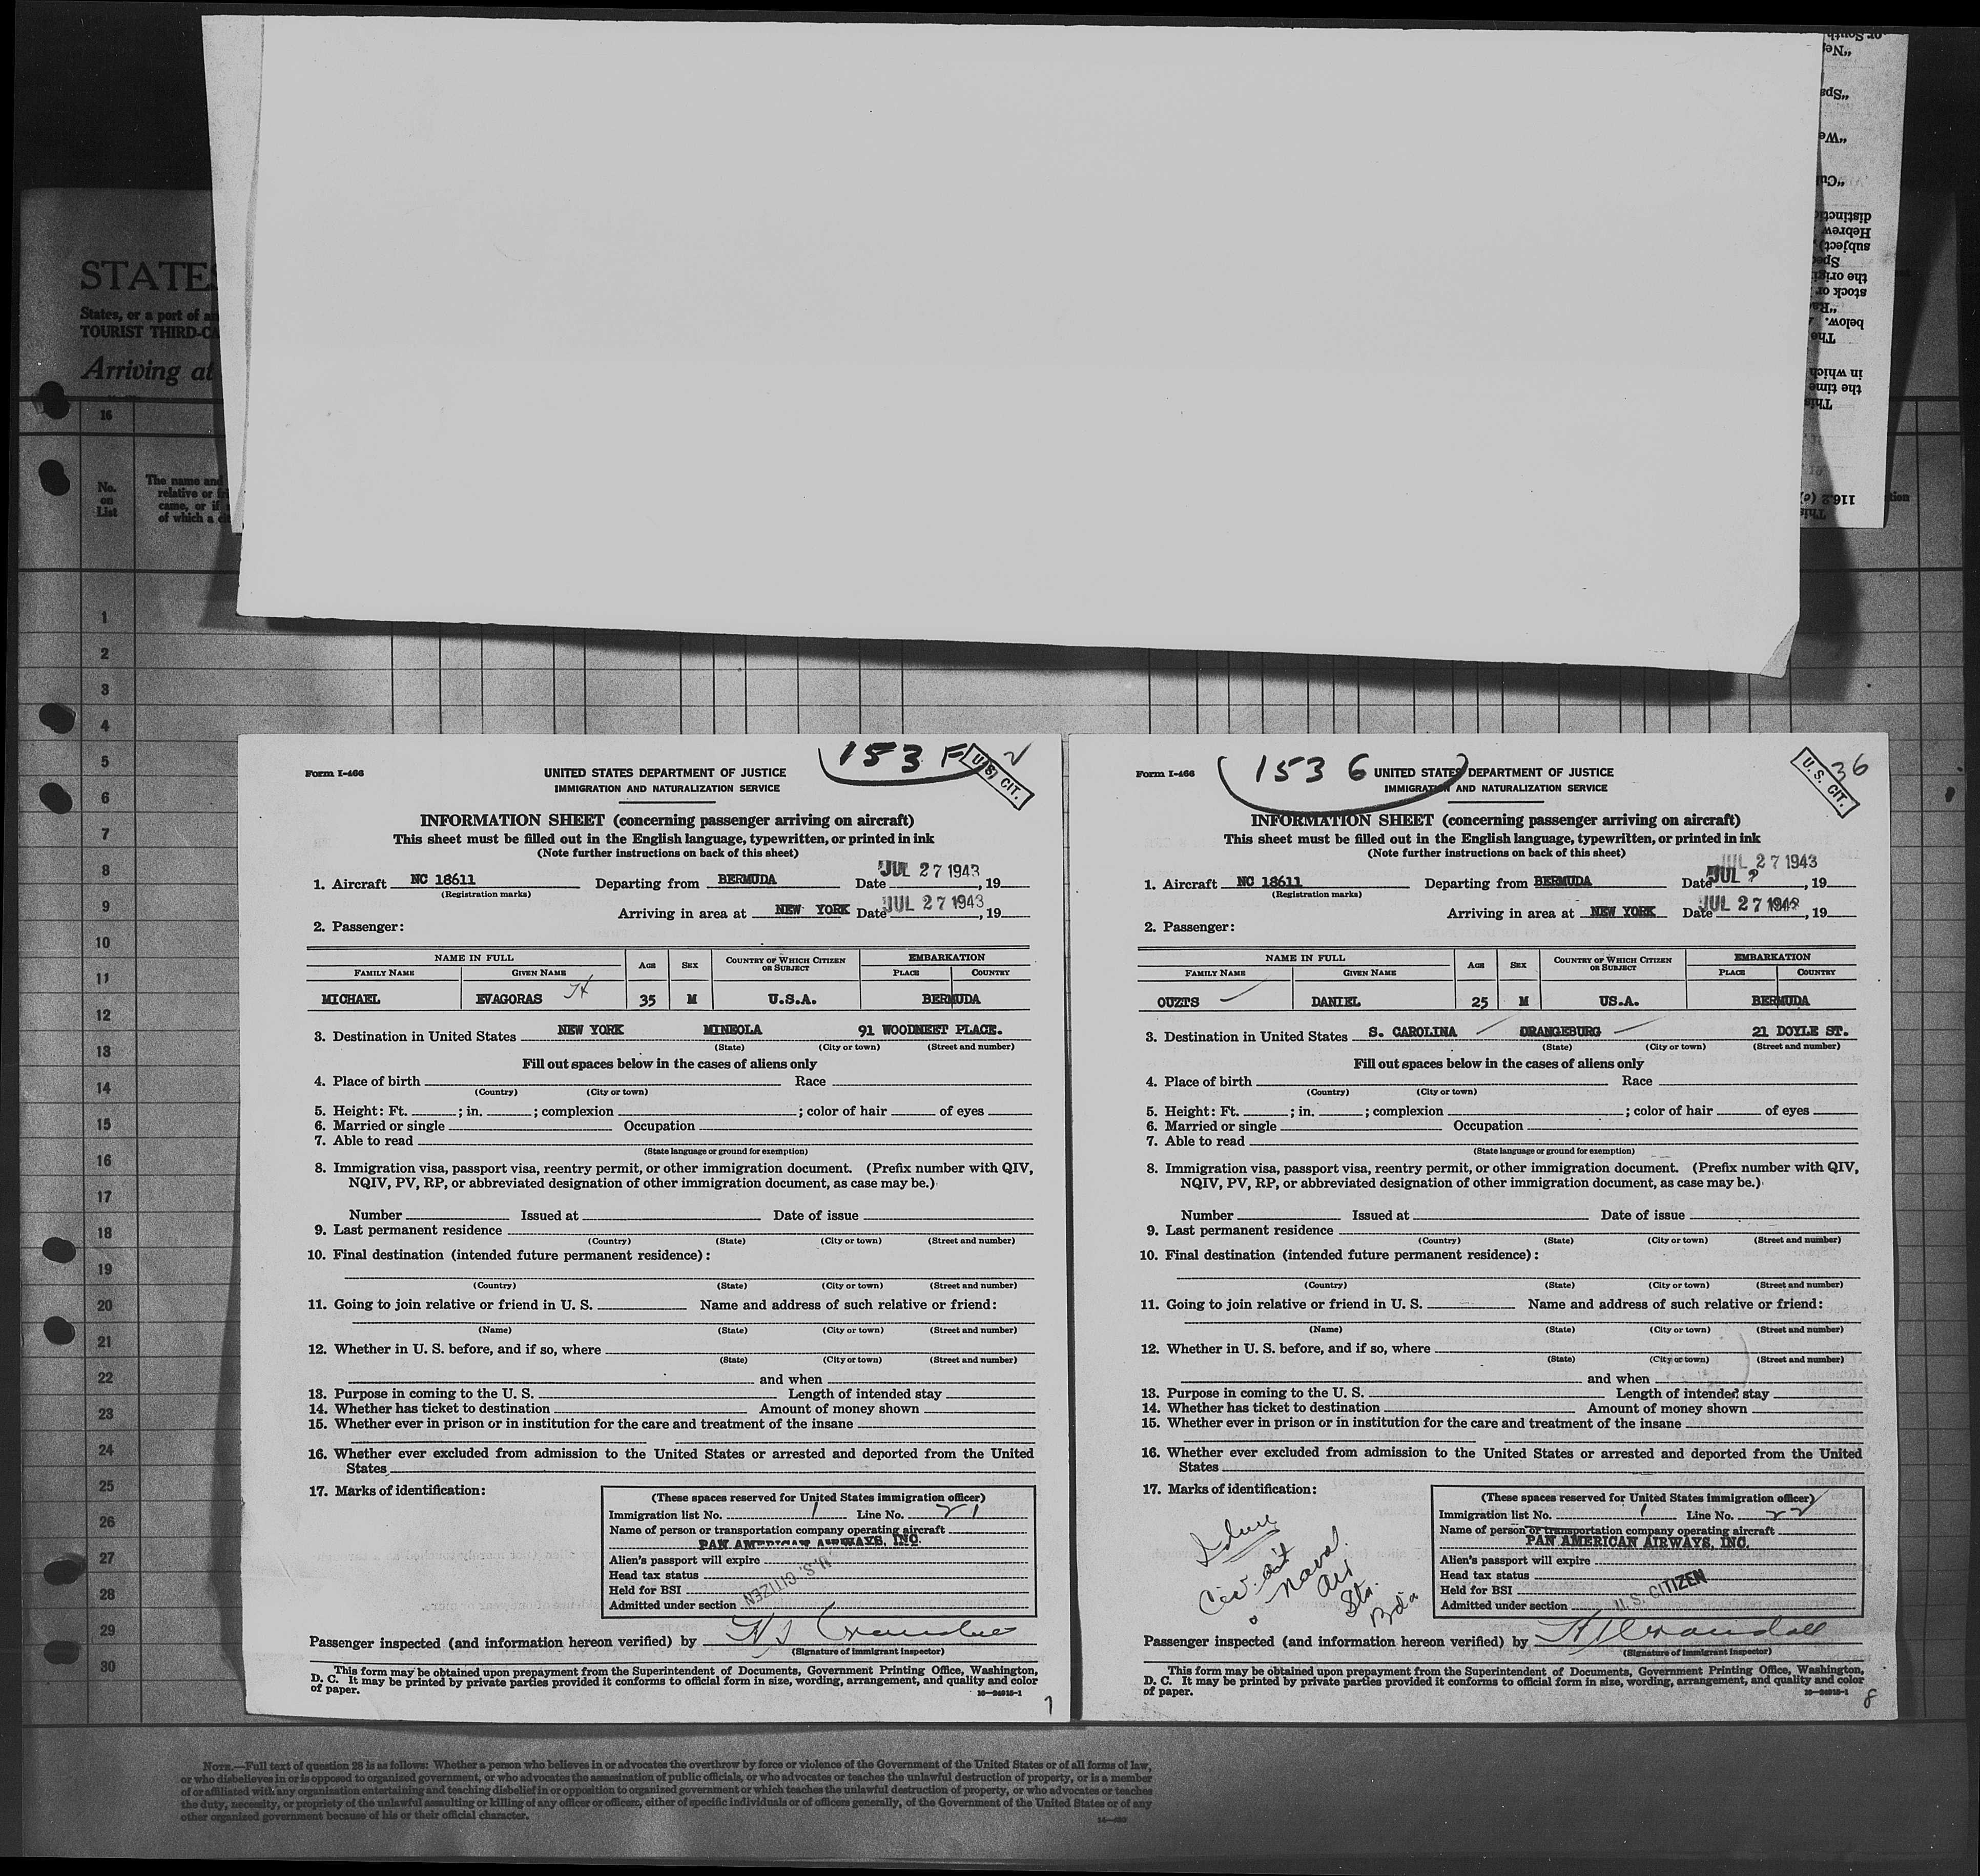 STATES
States, or a port of
TOURIST THIRD-CA
Arriving at
16
No.
on
List
The name and
relative or fri
came, or if
of which a
1
2
3
4
5
6
7
8
9
10
11
12
13
14
15
16
17
18
19
20
21
22
23
24
25
26
27
28
29
30
or South
"Ne
"Spa
"We
"Cu
distincti
Hebrew
subject)
Spe
the origi
stock or
"Ra
below.
The
in which
the time
This
116.2 (c)
This
tion
153 F
U.S. CIT.
Form I-466
UNITED STATES DEPARTMENT OF JUSTICE
IMMIGRATION AND NATURALIZATION SERVICE
INFORMATION SHEET (concerning passenger arriving on aircraft)
This sheet must be filled out in the English language, typewritten, or printed in ink
(Note further instructions on back of this sheet)
1. Aircraft NC 18611 Departing from BERMUDA Date JUL 27 1943, 19
(Registration marks)
Arriving in area at NEW YORK Date JUL 27 1943, 19
2. Passenger:
NAME IN FULL AGE SEX COUNTRY OF WHICH CITIZEN OR SUBJECT EMBARKATION
FAMILY NAME GIVEN NAME PLACE COUNTRY
MICHAEL EVAGORAS 35 M U.S.A. BERMUDA
3. Destination in United States NEW YORK MINEOLA 91 WOODNEET PLACE.
(State) (City or town) (Street and number)
Fill out spaces below in the cases of aliens only
4. Place of birth Race
(Country) (City or town)
5. Height: Ft. ; in. ; complexion ; color of hair of eyes
6. Married or single Occupation
7. Able to read
(State language or ground for exemption)
8. Immigration visa, passport visa, reentry permit, or other immigration document. (Prefix number with QIV,
NQIV, PV, RP, or abbreviated designation of other immigration document, as case may be.)
Number Issued at Date of issue
9. Last permanent residence
(Country) (State) (City or town) (Street and number)
10. Final destination (intended future permanent residence):
(Country) (State) (City or town) (Street and number)
11. Going to join relative or friend in U. S. Name and address of such relative or friend:
(Name) (State) (City or town) (Street and number)
12. Whether in U. S. before, and if so, where
(State) (City or town) (Street and number)
and when
13. Purpose in coming to the U. S. Length of intended stay
14. Whether has ticket to destination Amount of money shown
15. Whether ever in prison or in institution for the care and treatment of the insane
16. Whether ever excluded from admission to the United States or arrested and deported from the United
States
17. Marks of identification:
(These spaces reserved for United States immigration officer)
Immigration list No. 1 Line No. 21
Name of person or transportation company operating aircraft
PAN AMERICAN AIRWAYS, INC.
Alien's passport will expire
Head tax status
Held for BSI
Admitted under section
U. S. CITIZEN
Passenger inspected (and information hereon verified) by H J Crandall
(Signature of immigrant inspector)
This form may be obtained upon prepayment from the Superintendent of Documents, Government Printing Office, Washington,
D. C. It may be printed by private parties provided it conforms to official form in size, wording, arrangement, and quality and color
of paper. 16—24915-1
7
153 G
U. S. CIT.
36
Form I-466
UNITED STATES DEPARTMENT OF JUSTICE
IMMIGRATION AND NATURALIZATION SERVICE
INFORMATION SHEET (concerning passenger arriving on aircraft)
This sheet must be filled out in the English language, typewritten, or printed in ink
(Note further instructions on back of this sheet)
1. Aircraft NC 18611 Departing from BERMUDA Date JUL 27 1943, 19
(Registration marks)
Arriving in area at NEW YORK Date JUL 27 1943, 19
2. Passenger:
NAME IN FULL AGE SEX COUNTRY OF WHICH CITIZEN OR SUBJECT EMBARKATION
FAMILY NAME GIVEN NAME PLACE COUNTRY
OUZTS DANIEL 25 M US.A. BERMUDA
3. Destination in United States S. CAROLINA ORANGEBURG 21 DOYLE ST.
(State) (City or town) (Street and number)
Fill out spaces below in the cases of aliens only
4. Place of birth Race
(Country) (City or town)
5. Height: Ft. ; in. ; complexion ; color of hair of eyes
6. Married or single Occupation
7. Able to read
(State language or ground for exemption)
8. Immigration visa, passport visa, reentry permit, or other immigration document. (Prefix number with QIV,
NQIV, PV, RP, or abbreviated designation of other immigration document, as case may be.)
Number Issued at Date of issue
9. Last permanent residence
(Country) (State) (City or town) (Street and number)
10. Final destination (intended future permanent residence):
(Country) (State) (City or town) (Street and number)
11. Going to join relative or friend in U. S. Name and address of such relative or friend:
(Name) (State) (City or town) (Street and number)
12. Whether in U. S. before, and if so, where
(State) (City or town) (Street and number)
and when
13. Purpose in coming to the U. S. Length of intended stay
14. Whether has ticket to destination Amount of money shown
15. Whether ever in prison or in institution for the care and treatment of the insane
16. Whether ever excluded from admission to the United States or arrested and deported from the United
States
17. Marks of identification:
Naval
Air
Sta.
Bda
(These spaces reserved for United States immigration officer)
Immigration list No. 1 Line No. 22
Name of person or transportation company operating aircraft
PAN AMERICAN AIRWAYS, INC.
Alien's passport will expire
Head tax status
Held for BSI
Admitted under section
U. S. CITIZEN
Passenger inspected (and information hereon verified) by H J Crandall
(Signature of immigrant inspector)
This form may be obtained upon prepayment from the Superintendent of Documents, Government Printing Office, Washington,
D. C. It may be printed by private parties provided it conforms to official form in size, wording, arrangement, and quality and color
of paper. 16—24915-1
8
NOTE.—Full text of question 28 is as follows: Whether a person who believes in or advocates the overthrow by force or violence of the Government of the United States or of all forms of law,
or who disbelieves in or is opposed to organized government, or who advocates the assassination of public officials, or who advocates or teaches the unlawful destruction of property, or is a member
of or affiliated with any organization entertaining and teaching disbelief in or opposition to organized government or which teaches the unlawful destruction of property, or who advocates or teaches
the duty, necessity, or propriety of the unlawful assaulting or killing of any officer or officers, either of specific individuals or of officers generally, of the Government of the United States or of any
other organized government because of his or their official character.